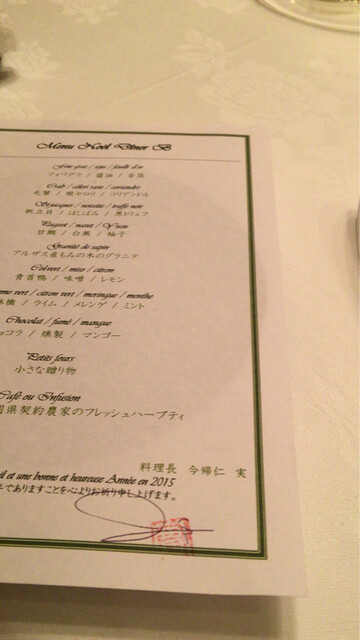 Menu Noël Dîner B
Foie gras / soja / feuille d'or
フォワグラ / 醤油 / 金箔
Crab / céleri rave / coriandre
毛蟹 / 根セロリ / コリアンドル
St-jacques / noisette / truffe noir
帆立貝 / はしばみ / 黒トリュフ
Pageot / navet / Yuzu
甘鯛 / 白蕪 / 柚子
Granité de sapin
アルザス産もみの木のグラニテ
Colvert / miso / citron
青首鴨 / 味噌 / レモン
me vert / citron vert / meringue / menthe
林檎 / ライム / メレンゲ / ミント
Chocolat / fumé / mangue
ョコラ / 燻製 / マンゴー
Petits fours
小さな贈り物
Café ou Infusion
県契約農家のフレッシュハーブティ
料理長 今帰仁 実
et une bonne et heureuse Année en 2015
でありますことを心よりお祈り申し上げます。